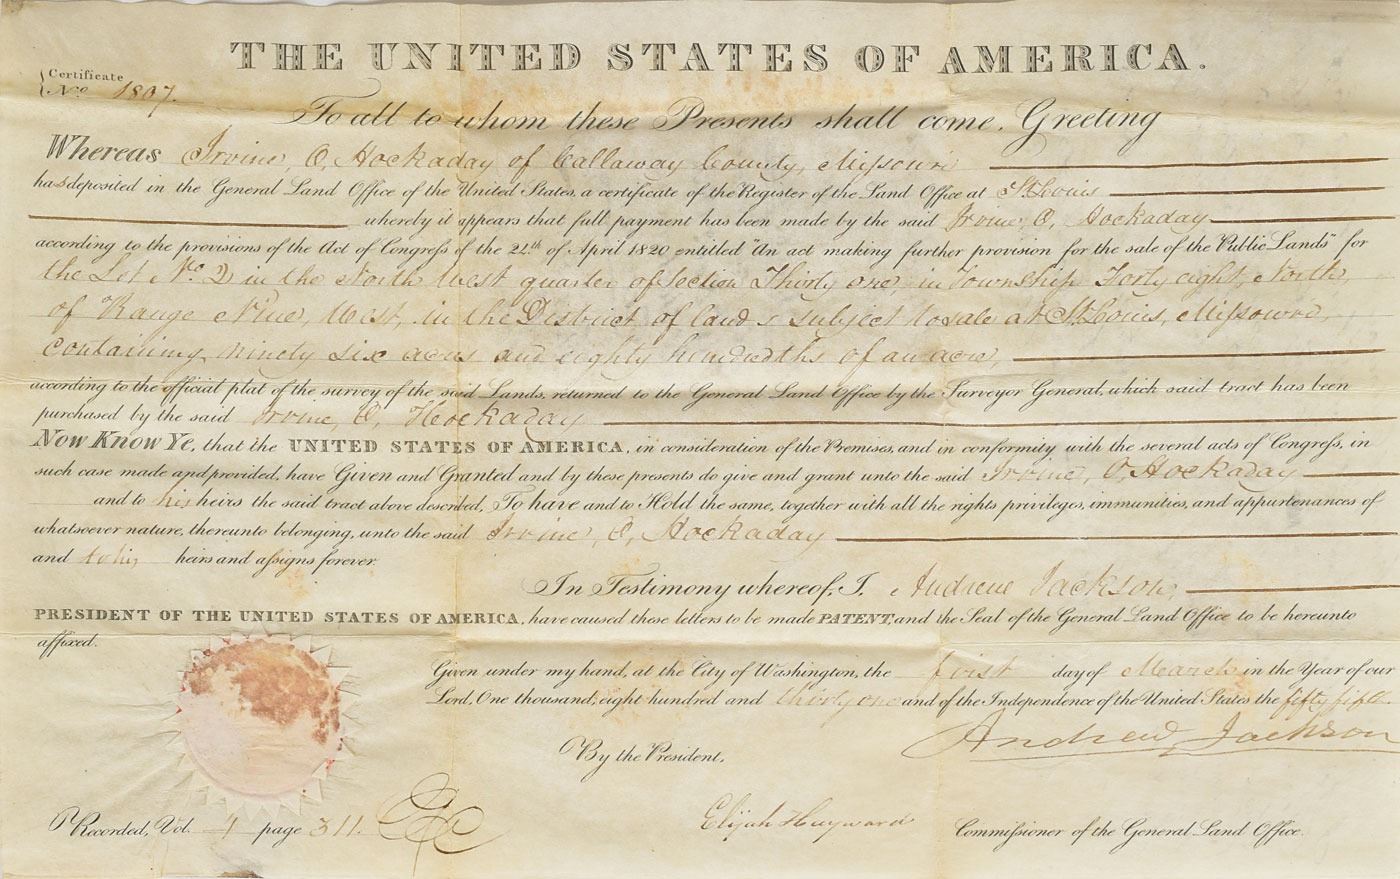 THE UNITED STATES OF AMERICA.
Certificate
No. 1807.
To all to whom these Presents shall come, Greeting
Whereas Irvine, O, Hockaday of Callaway County, Missouri
has deposited in the General Land Office of the United States, a certificate of the Register of the Land Office at St Louis
whereby it appears that full payment has been made by the said Irvine, O, Hockaday
according to the provisions of the Act of Congress of the 24th of April 1820 entitled "An act making further provision for the sale of the Public Lands" for
the Lot No. 2 in the North West quarter of Section Thirty one, in Township Forty eight, North,
of Range Nine, West, in the District of lands subject to sale at St Louis, Missouri,
containing ninety six acres and eighty hundredths of an acre,
according to the official plat of the survey of the said Lands, returned to the General Land Office by the Surveyor General, which said tract has been
purchased by the said Irvine, O, Hockaday
Now Know Ye, that the UNITED STATES OF AMERICA, in consideration of the Premises, and in conformity with the several acts of Congress, in
such case made and provided, have Given and Granted and by these presents do give and grant unto the said Irvine, O, Hockaday
and to his heirs the said tract above described, To have and to Hold the same, together with all the rights privileges, immunities, and appurtenances of
whatsoever nature, thereunto belonging, unto the said Irvine, O, Hockaday
and to his heirs and assigns forever.
In Testimony whereof, I, Andrew Jackson,
PRESIDENT OF THE UNITED STATES OF AMERICA, have caused these letters to be made PATENT, and the Seal of the General Land Office to be hereunto
affixed.
Given under my hand, at the City of Washington, the first day of March in the Year of our
Lord, One thousand, eight hundred and thirty one and of the Independence of the United States the fifty fifth
Andrew Jackson
By the President,
Elijah Hayward Commissioner of the General Land Office.
Recorded, Vol. 4 page 311.